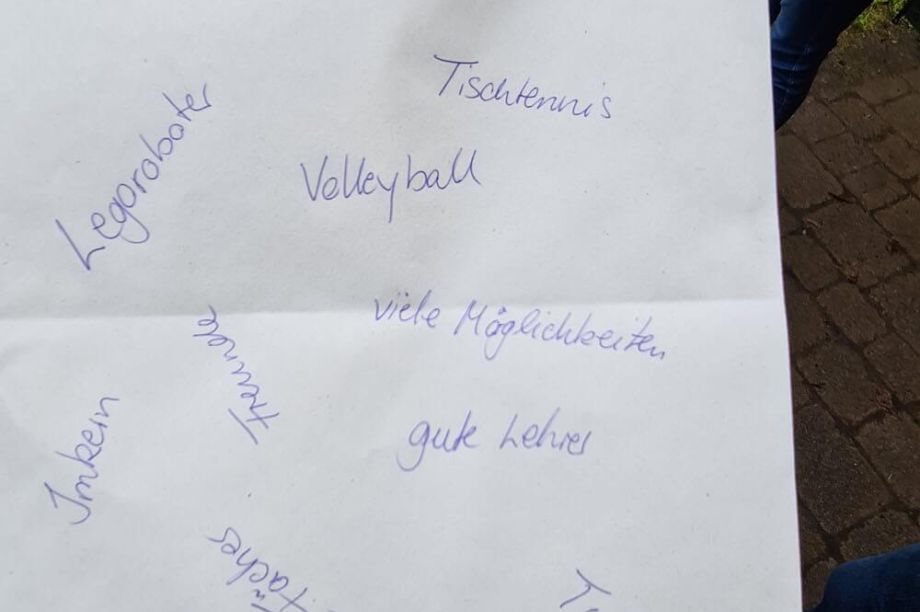 Tischtennis
Legoroboter
Volleyball
viele Möglichkeiten
Freunde
gute Lehrer
Imkern